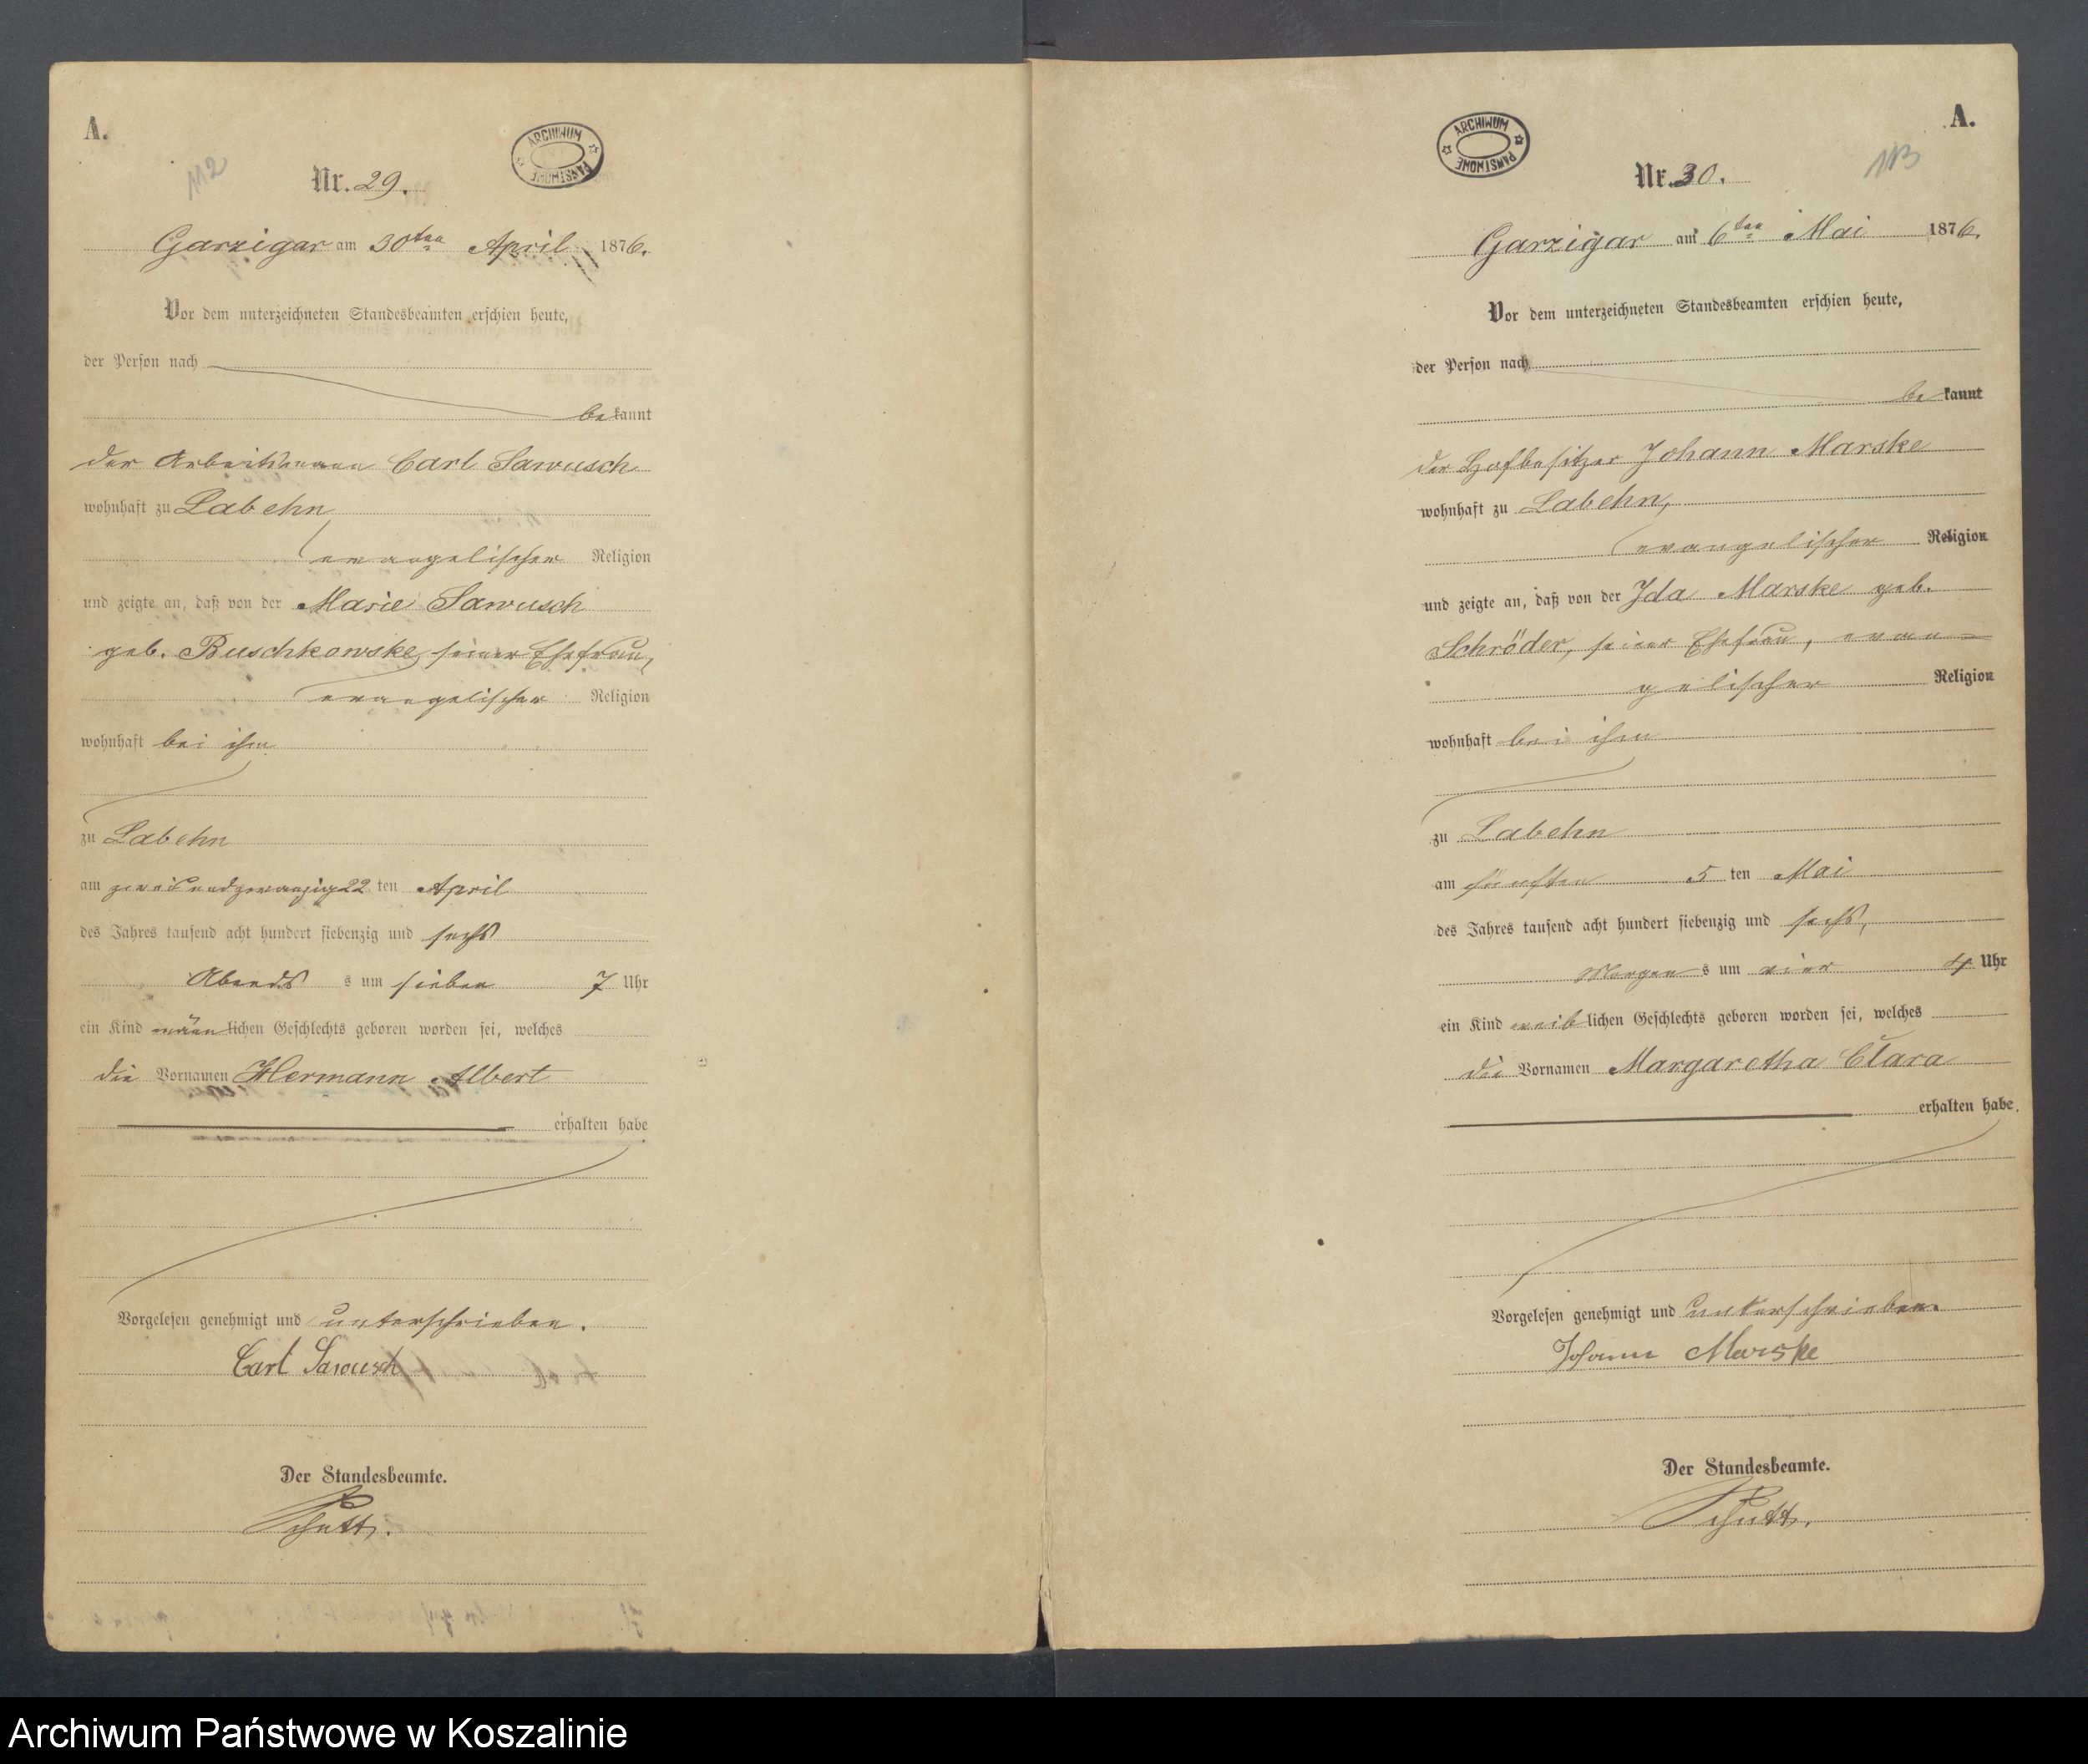 A.
112
ARCHIWUM PAŃSTWOWE
Nr. 29.
Garzigar am 30ten April 1876.
Vor dem unterzeichneten Standesbeamten erschien heute,
der Person nach
bekannt
der Arbeitsmann Carl Sawusch
wohnhaft zu Labehn
evangelischer Religion
und zeigte an, daß von der Marie Sawusch
geb. Buschkowske, seiner Ehefrau,
evangelischer Religion
wohnhaft bei ihm
zu Labehn
am zweiundzwanzig 22 ten April
des Jahres tausend acht hundert siebenzig und sechs
Abends s um sieben 7 Uhr
ein Kind männlichen Geschlechts geboren worden sei, welches
die Vornamen Hermann Albert
erhalten habe
Vorgelesen genehmigt und unterschrieben.
Carl Sawusch
Der Standesbeamte.
Schutt.
A.
113
ARCHIWUM PAŃSTWOWE
Nr. 30.
Garzigar am 6ten Mai 1876.
Vor dem unterzeichneten Standesbeamten erschien heute,
der Person nach
bekannt
der Hofbesitzer Johann Marske
wohnhaft zu Labehn,
evangelischer Religion
und zeigte an, daß von der Ida Marske geb.
Schröder, seiner Ehefrau, evan-
gelischer Religion
wohnhaft bei ihm
zu Labehn
am fünften 5 ten Mai
des Jahres tausend acht hundert siebenzig und sechs,
Morgens um vier 4 Uhr
ein Kind weiblichen Geschlechts geboren worden sei, welches
die Vornamen Margaretha Clara
erhalten habe.
Vorgelesen genehmigt und unterschrieben.
Johann Marske
Der Standesbeamte.
Schutt.
Archiwum Państwowe w Koszalinie